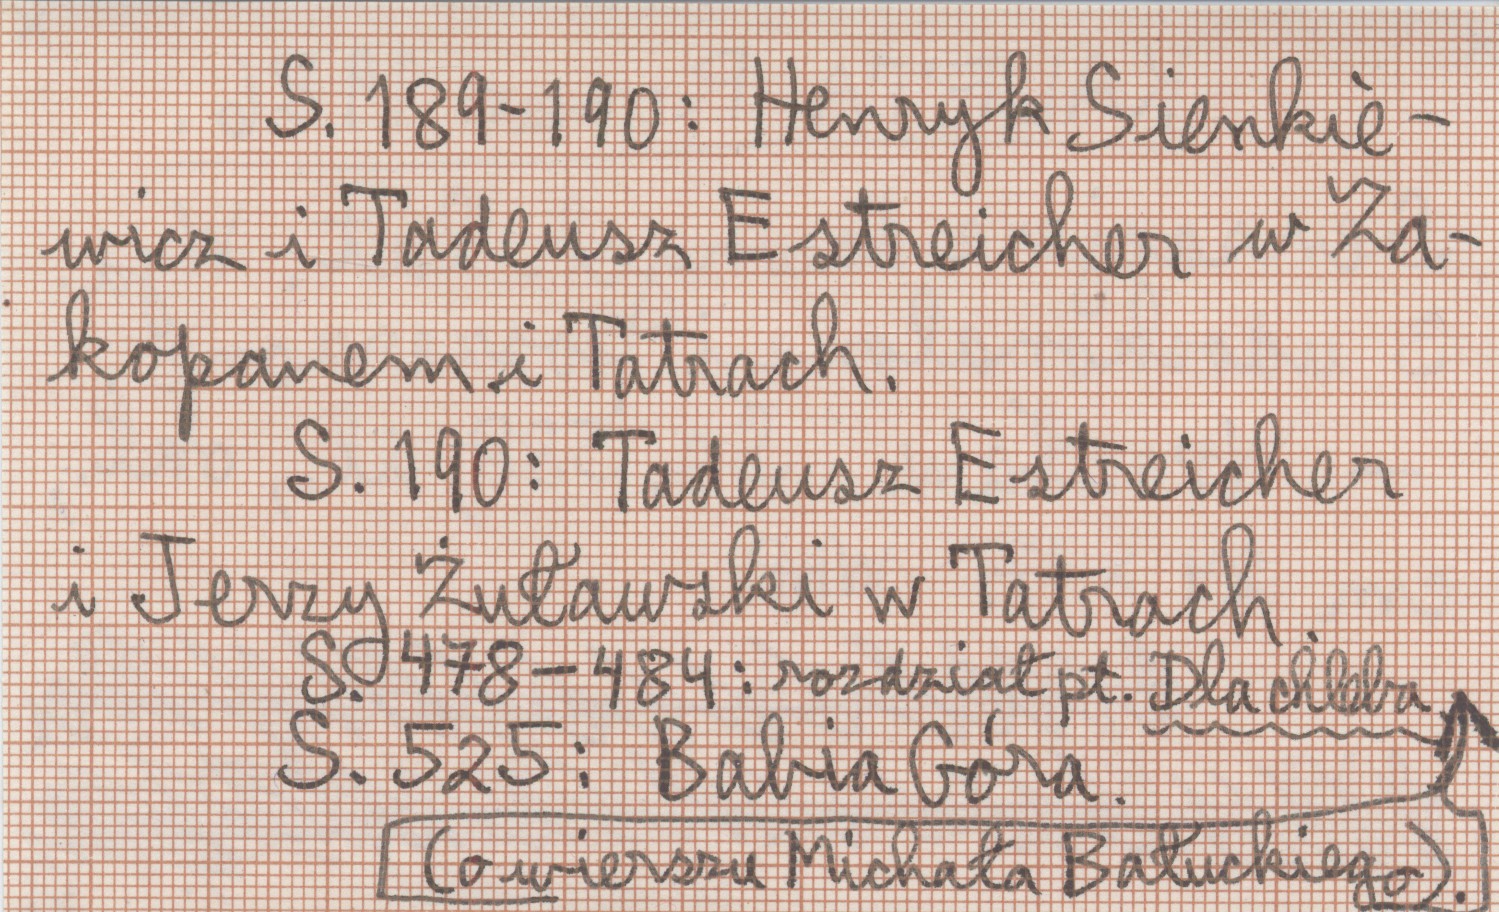 S. 189-190: Henryk Sienkie-
wicz i Tadeusz Estreicher w Za-
kopanem i Tatrach.
S. 190: Tadeusz Estreicher
i Jerzy Żuławski w Tatrach.
S. 478-484: rozdział pt. Dla chleba
S. 525: Babia Góra.
(o wierszu Michała Bałuckiego).